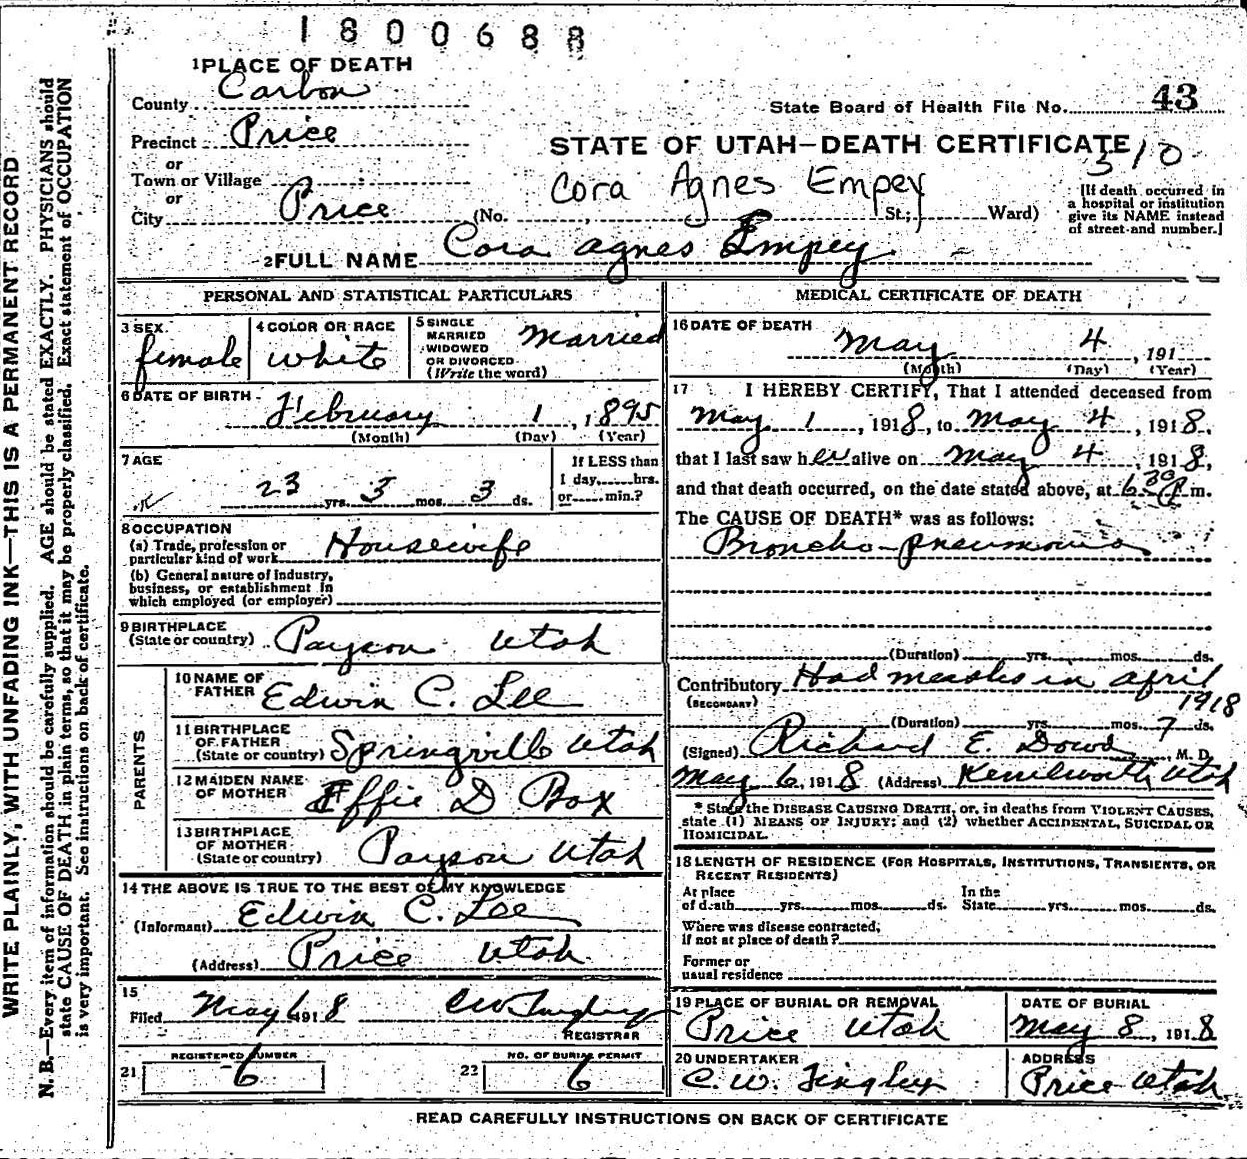 1800688
1 PLACE OF DEATH
County Carbon
State Board of Health File No. 43
Precinct Price
STATE OF UTAH—DEATH CERTIFICATE
310
or
Town or Village
Cora Agnes Empey
or
City Price (No. St.; Ward)
[If death occurred in
a hospital or institution
give its NAME instead
of street and number.]
2 FULL NAME Cora Agnes Empey
PERSONAL AND STATISTICAL PARTICULARS
3 SEX
female
4 COLOR OR RACE
white
5 SINGLE
MARRIED
WIDOWED
OR DIVORCED
(Write the word)
Married
6 DATE OF BIRTH
February 1, 1895
(Month) (Day) (Year)
7 AGE
23 yrs. 3 mos. 3 ds.
If LESS than
1 day......hrs.
or......min.?
8 OCCUPATION
(a) Trade, profession or
particular kind of work Housewife
(b) General nature of Industry,
business, or establishment in
which employed (or employer)
9 BIRTHPLACE
(State or country) Payson Utah
PARENTS
10 NAME OF
FATHER Edwin C. Lee
11 BIRTHPLACE
OF FATHER
(State or country) Springville Utah
12 MAIDEN NAME
OF MOTHER Effie D Box
13 BIRTHPLACE
OF MOTHER
(State or country) Payson Utah
14 THE ABOVE IS TRUE TO THE BEST OF MY KNOWLEDGE
(Informant) Edwin C. Lee
(Address) Price Utah
15
Filed May 6 1918 C W Tingley
REGISTRAR
21 REGISTERED NUMBER
6
22 NO. OF BURIAL PERMIT
6
MEDICAL CERTIFICATE OF DEATH
16 DATE OF DEATH
May 4, 191
(Month) (Day) (Year)
17 I HEREBY CERTIFY, That I attended deceased from
May 1, 1918, to May 4, 1918,
that I last saw her alive on May 4, 1918,
and that death occurred, on the date stated above, at 6 30 P m.
The CAUSE OF DEATH* was as follows:
Broncho-pneumonia
(Duration) yrs. mos. ds.
Contributory Had measles in april
(SECONDARY) 1918
(Duration) yrs. mos. 7 ds.
(Signed) Richard E. Dowd, M. D.
May 6, 1918 (Address) Kenilworth Utah
* State the DISEASE CAUSING DEATH, or, in deaths from VIOLENT CAUSES,
state (1) MEANS OF INJURY; and (2) whether ACCIDENTAL, SUICIDAL OR
HOMICIDAL.
18 LENGTH OF RESIDENCE (FOR HOSPITALS, INSTITUTIONS, TRANSIENTS, OR
RECENT RESIDENTS)
At place
of death yrs. mos. ds.
In the
State yrs. mos. ds.
Where was disease contracted,
if not at place of death?
Former or
usual residence
19 PLACE OF BURIAL OR REMOVAL
Price Utah
DATE OF BURIAL
May 8, 1918
20 UNDERTAKER
C. W. Tingley
ADDRESS
Price Utah
READ CAREFULLY INSTRUCTIONS ON BACK OF CERTIFICATE
WRITE PLAINLY, WITH UNFADING INK—THIS IS A PERMANENT RECORD
N. B.—Every item of information should be carefully supplied. AGE should be stated EXACTLY. PHYSICIANS should
state CAUSE OF DEATH in plain terms, so that it may be properly classified. Exact statement of OCCUPATION
is very important. See instructions on back of certificate.